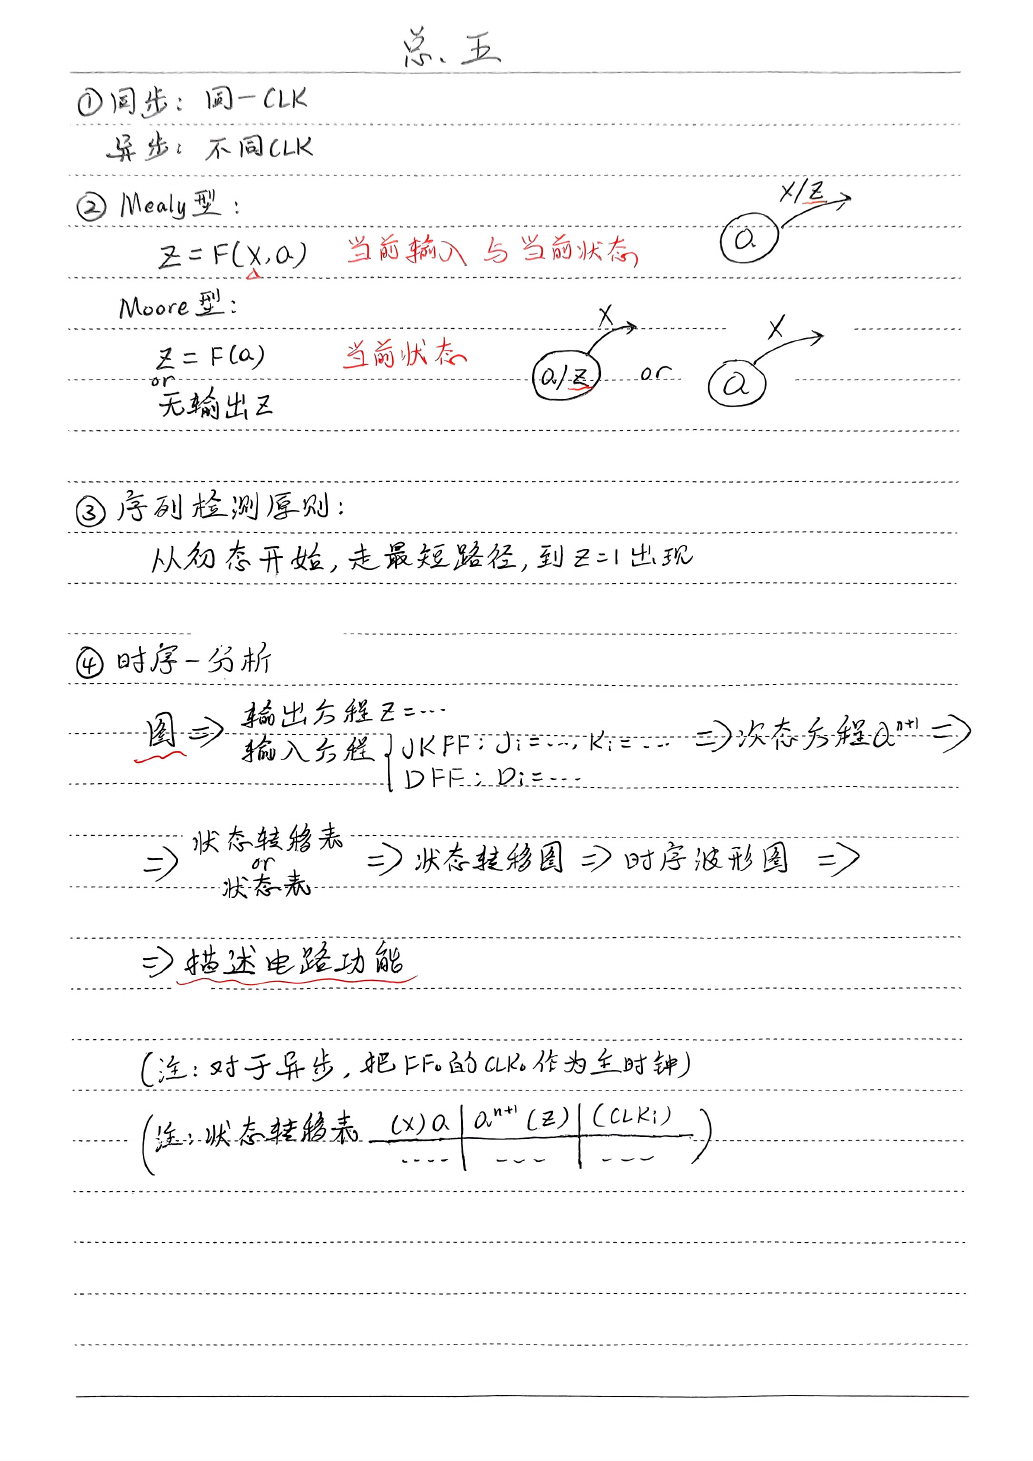 总、五
①同步：同一CLK
异步：不同CLK
②Mealy型：
X/Z
Q
Z=F(X,Q) 当前输入与当前状态
Moore型：
X X
Z=F(Q) 当前状态
Q/Z or Q
or
无输出Z
③序列检测原则：
从初态开始,走最短路径,到Z=1出现
④时序-分析
图⇒ 输出方程Z=…
输入方程{JKFF: Ji=…, Ki=… ⇒次态方程Qⁿ⁺¹⇒
DFF: Di=…
⇒ 状态转移表
or ⇒状态转移图⇒时序波形图⇒
状态表
⇒描述电路功能
(注:对于异步,把FF₀的CLK₀作为主时钟)
(注:状态转移表 (X)Q | Qⁿ⁺¹(Z) | (CLKi)
---- | --- | --- )